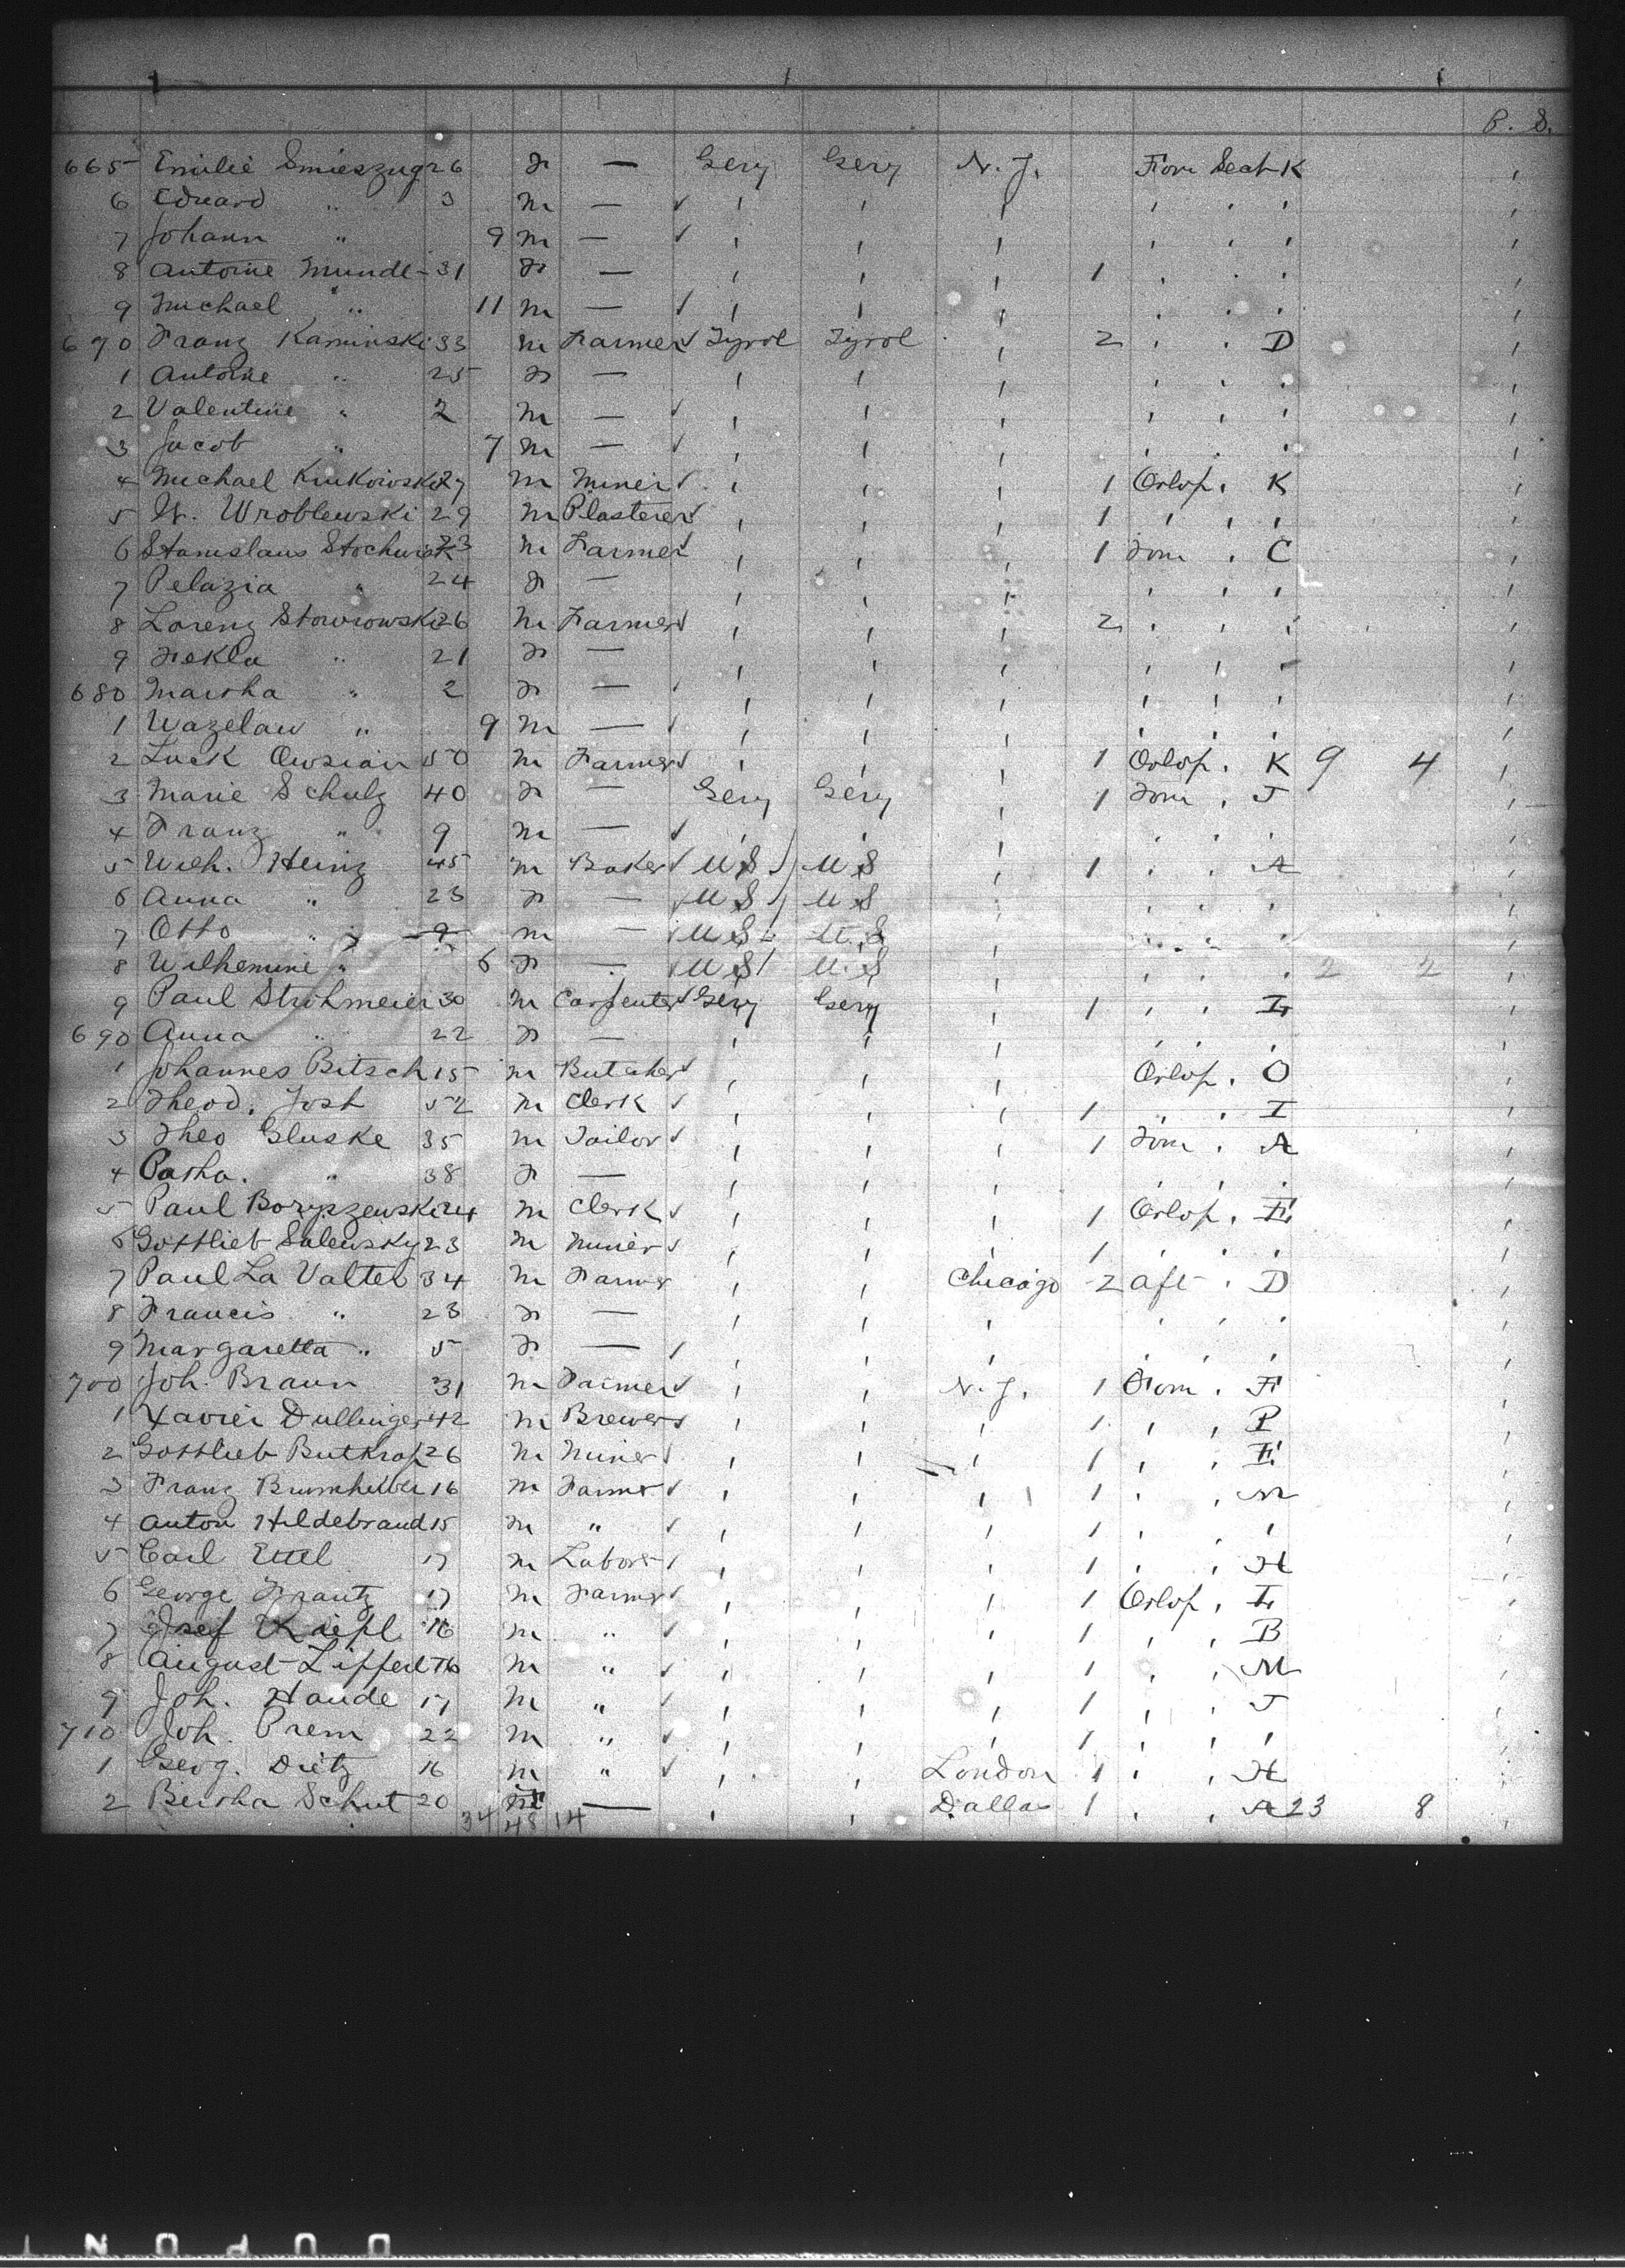 P. S.
665 Emilie Smieszug 26 F — Gery Gery N. Y. For Sect K
6 Eduard " 3 m — ✓ ' ' ' ' ' '
7 Johann " 9 m — ✓ ' ' ' ' ' '
8 Antoine Munde 31 F — ' ' ' 1 ' ' '
9 Michael " 11 m — ✓ ' ' ' ' ' '
670 Franz Kaminski 33 m Farmer ✓ Tyrol Tyrol ' 2 ' ' D
1 Antoine " 25 F — ' ' ' ' ' '
2 Valentine " 2 m — ✓ ' ' ' ' ' '
3 Jacob " 7 m — ✓ ' ' ' ' ' '
4 Michael 27 m Miner ✓ ' ' ' 1 Orlop ' K
5 W. Wroblewski 29 m Plasterer ✓ ' ' ' 1 ' ' '
6 Stanislaus 23 m Farmer ' ' ' 1 Form ' C
7 Pelazia " 24 F — ' ' ' ' ' '
8 Lorenz 26 m Farmer ✓ ' ' ' 2 ' ' '
9 Tekla " 21 F — ' ' ' ' ' '
680 Martha " 2 F — ✓ ' ' ' ' ' '
1 Wazelaw " 9 m — ✓ ' ' ' ' ' '
2 Owsian 50 m Farmer ✓ ' ' ' 1 Orlop ' K 9 4 '
3 Marie Schulz 40 F — Gery Gery ' 1 Form ' J '
4 Franz " 9 m — ✓ ' ' ' ' ' '
5 Wilh. Heinz 45 m Baker ✓ U S U S ' 1 ' ' A
6 Anna " 23 F — ✓ U S U S ' ' ' '
7 Otto " 9 m — ✓ U S U. S ' ' ' '
8 Wilhemine " 6 F — ✓ U S U. S ' ' ' ' 2 2
9 Paul Strohmeier 30 m Carpenter ✓ Gery Gery ' 1 ' ' L
690 Anna " 22 F — ' ' ' ' ' '
1 Johannes Bitsch 15 m Butcher ✓ ' ' ' Orlop. O
2 Theod. Jost 52 m Clerk ✓ ' ' ' 1 ' ' I
3 Theo Gluske 35 m Tailor ✓ ' ' ' 1 Form ' A
4 " 38 F — ' ' ' ' ' '
5 Paul Boryszewski 24 m Clerk ✓ ' ' ' 1 Orlop. E
6 Gottlieb Salewsky 23 m Miner ✓ ' ' ' 1 ' ' '
7 Paul La Valter 34 m Farmer ' ' Chicago 2 aft ' D
8 Francis " 23 F — ' ' ' ' ' '
9 Margaretta " 5 F — ✓ ' ' ' ' ' '
700 Joh. Braun 31 m Farmer ✓ ' ' N. Y. 1 Form ' F
1 Xavier Dullinger 42 m Brewer ✓ ' ' ' 1 ' ' P
2 Gottlieb Butkrop 26 m Miner ✓ ' ' ' 1 ' ' E
3 Franz 16 m Farmer ✓ ' ' ' 1 ' ' M
4 Anton Hildebrand 15 m " ✓ ' ' ' 1 ' ' '
5 Carl Ettel 17 m Labor ✓ ' ' ' 1 ' ' H
6 George Frantz 17 m Farmer ✓ ' ' ' 1 Orlop ' L
7 Josef 16 m " ' ' ' 1 ' ' B
8 August Liffert 16 m " ✓ ' ' ' 1 ' ' M
9 Joh. Haude 17 m " ✓ ' ' ' 1 ' ' J
710 Joh. Prem 22 m " ✓ ' ' ' 1 ' ' '
1 Georg. Dietz 16 m " ✓ ' ' London 1 ' ' H
2 Bertha Schut 20 F — ' ' Dallas 1 ' ' A 23 8
34 48 14